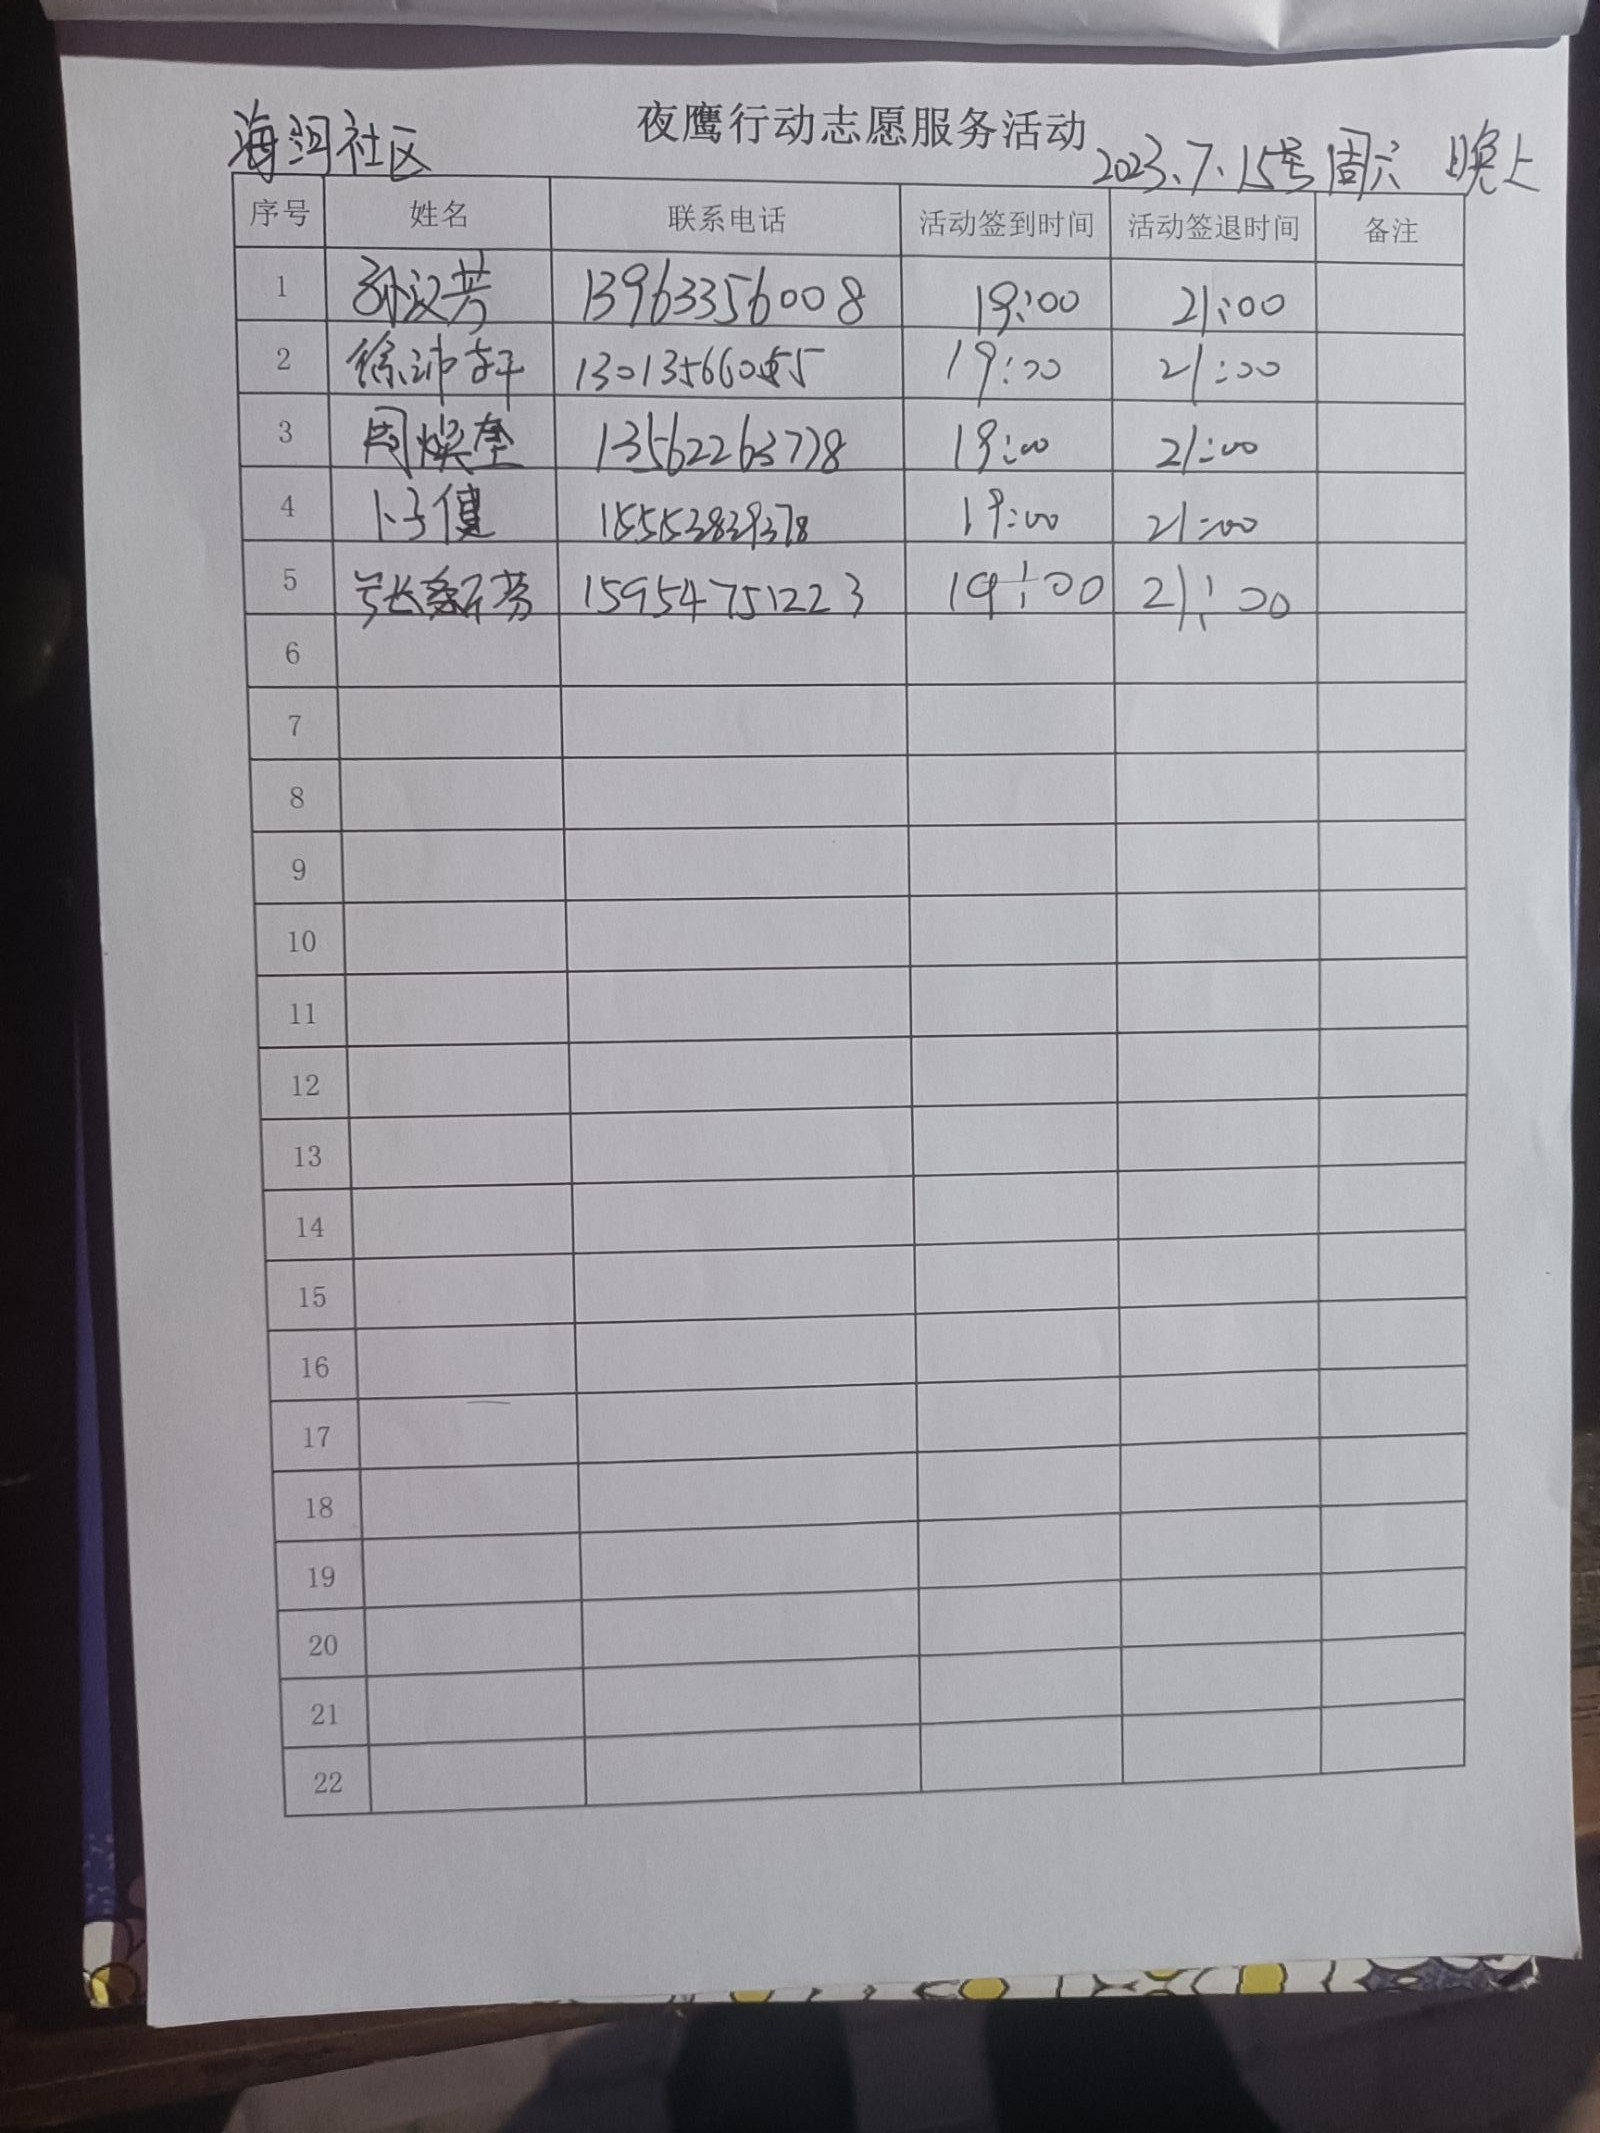 海河社区
夜鹰行动志愿服务活动
2023.7.15号 周六 晚上
序号 姓名 联系电话 活动签到时间 活动签退时间 备注
1 孙汉芳 13963356008 19:00 21:00
2 徐沛轩 19:00 21:00
3 周焕奎 13562263778 19:00 21:00
4 卜子健 15553839378 19:00 21:00
5 15954751223 19:00 21:00
6
7
8
9
10
11
12
13
14
15
16
17
18
19
20
21
22